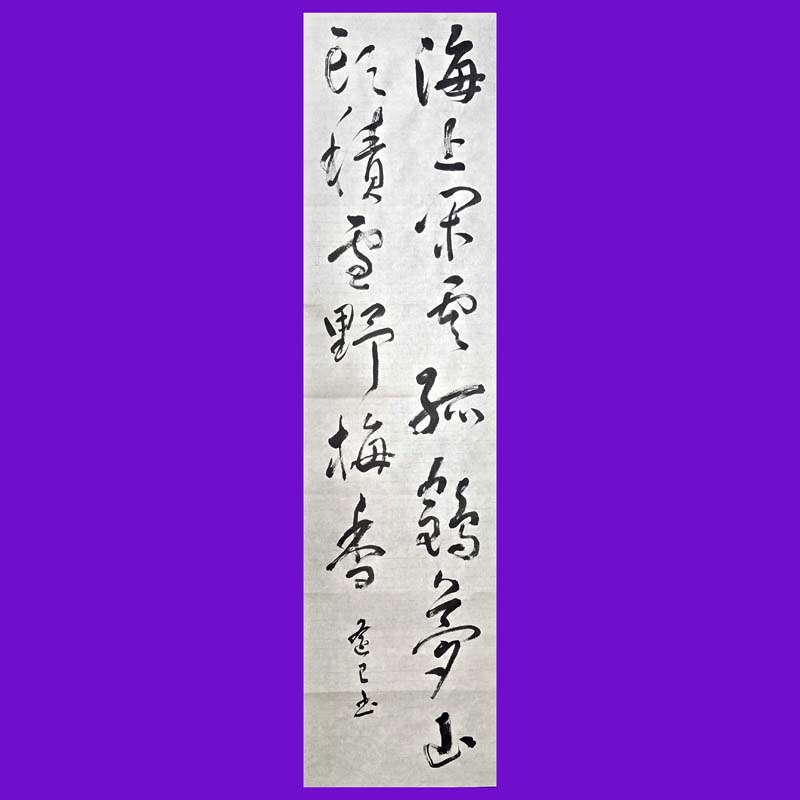 海上閑雲孤鶴夢山
頭積雪野梅香
書